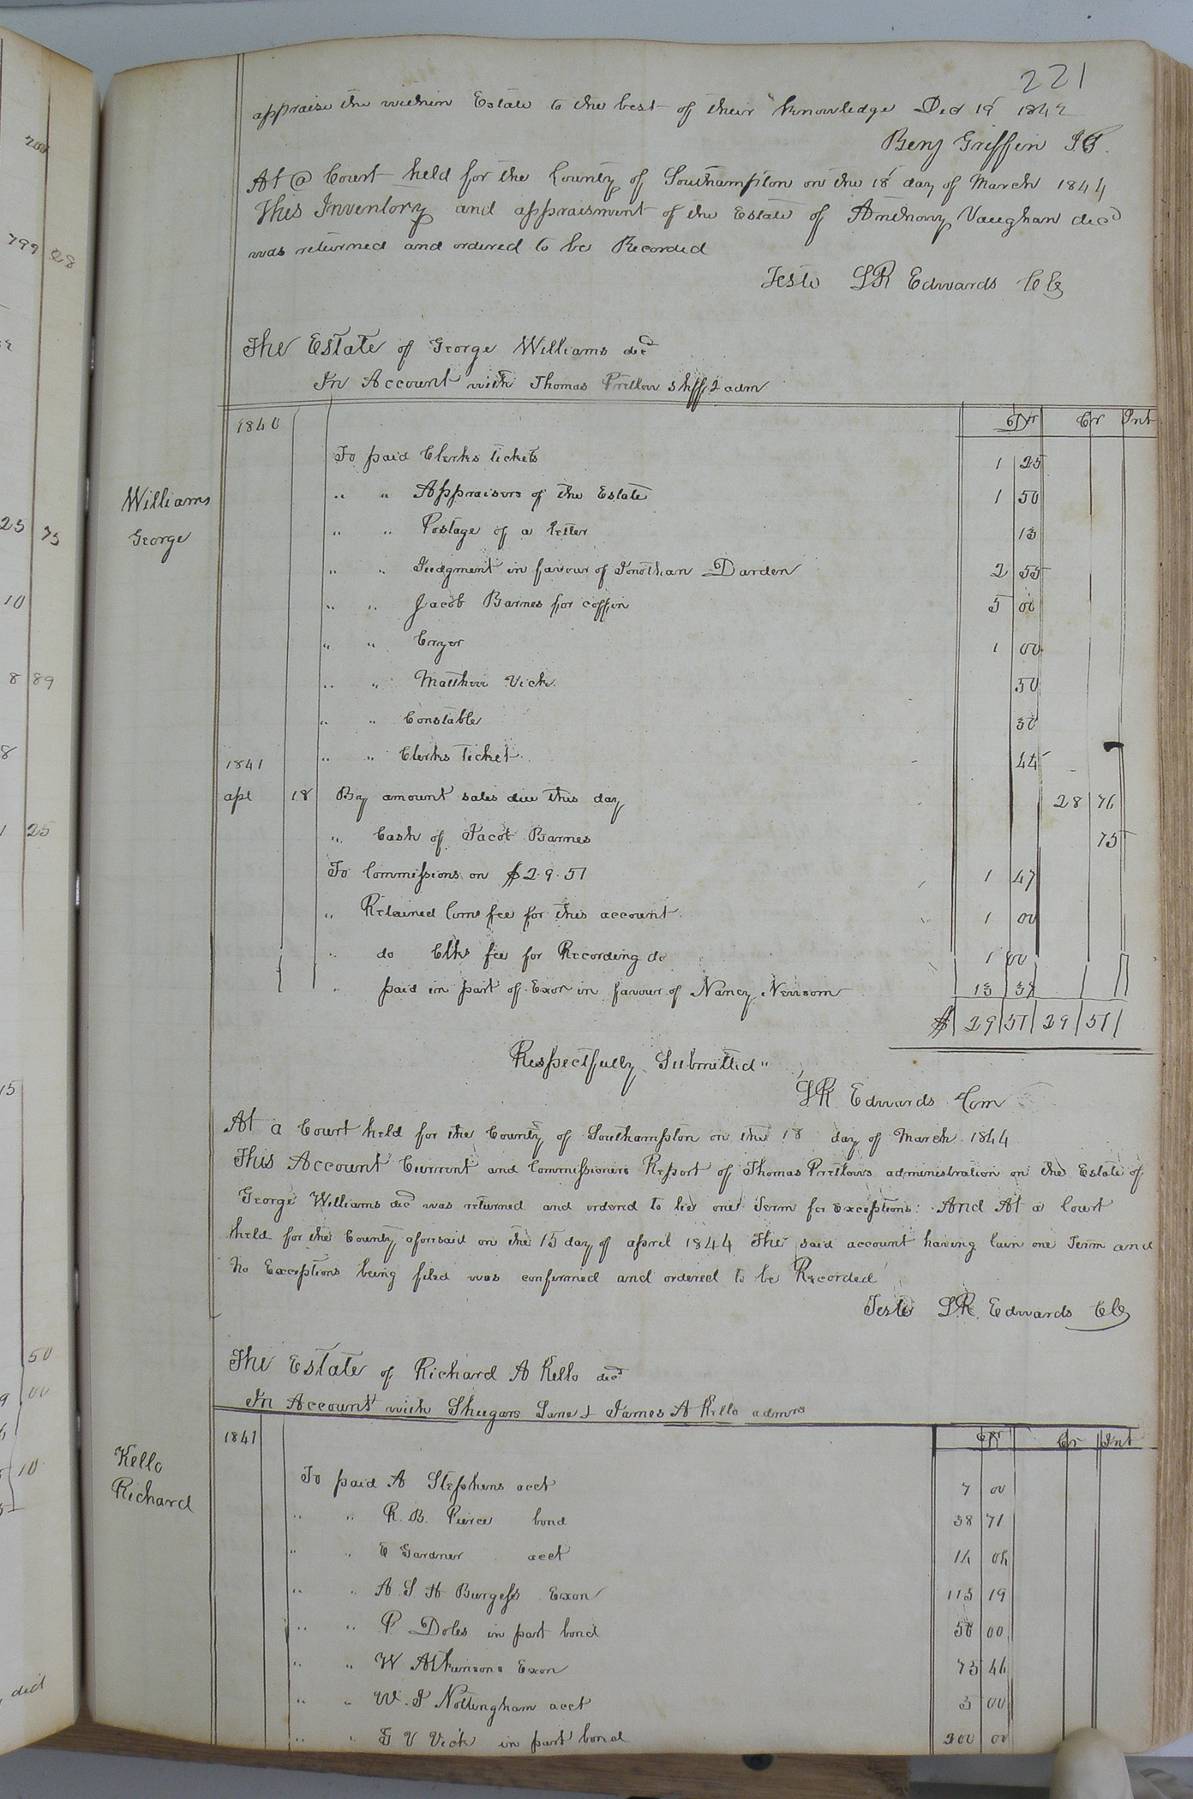 221
appraise the within Estate to the best of their knowledge Decd 19 1842
Benj Griffin JP.
At @ Court held for the County of Southampton on the 18 day of March 1844
This Inventory and appraisment of the Estate of Anthony Vaughan decd
was returned and ordered to be Recorded
Teste LR Edwards
The Estate of George Williams decd
In Account with Thomas Pretlow shff & adm
1840 Dr Cr Int
To paid Clerks tickets 1 25
" " Appraisors of the Estate 1 50
Williams
" " Postage of a letter 13
George
" " Judgment in favour of Jonothan Darden 2 55
" " Jacob Barnes for coffin 5 00
" " Cryor 1 00
" " Matthew Vick 50
" " Constable 30
" " Clerks Ticket 44
1841
apl 18 By amount sales due this day 28 76
" Cash of Jacob Barnes 75
To Commissions on $29.51 1 47
" Retained Coms fee for this account 1 00
" do Clks fee for Recording do 1 00
" paid in part of Exon in favour of Nancy Newsom 13 37
$ 29 51 29 51
Respectfully Submitted"
LR Edwards Com
At a Court held for the County of Southampton on the 18 day of March 1844
This Account Current and Commissioners Report of Thomas Pretlows administration on the Estate of
George Williams decd was returned and ordered to lie one Term for exceptions: And At a Court
held for the County aforesaid on the 15 day of april 1844 The said account having lain one Term and
No Exceptions being filed was confirmed and ordered to be Recorded
Teste LR Edwards
The Estate of Richard A Kello decd
In Account with Shugars Lane & James A Kello admrs
1841 Dr Cr Int
Kello
Richard
To paid A Stephens acct 7 00
" " R. B. Pierce bond 38 71
" " E Gardner acct
" " A. S. H Burgess Exon 113 19
" " P Doles in part bond 50 00
" " W Atkinsons Exon 73 46
" " W. J Nottingham acct 3 00
" " Vick in part bond 300 00
799 28
25 75
10
8 89
8
1 25
15
50
00
10
decd